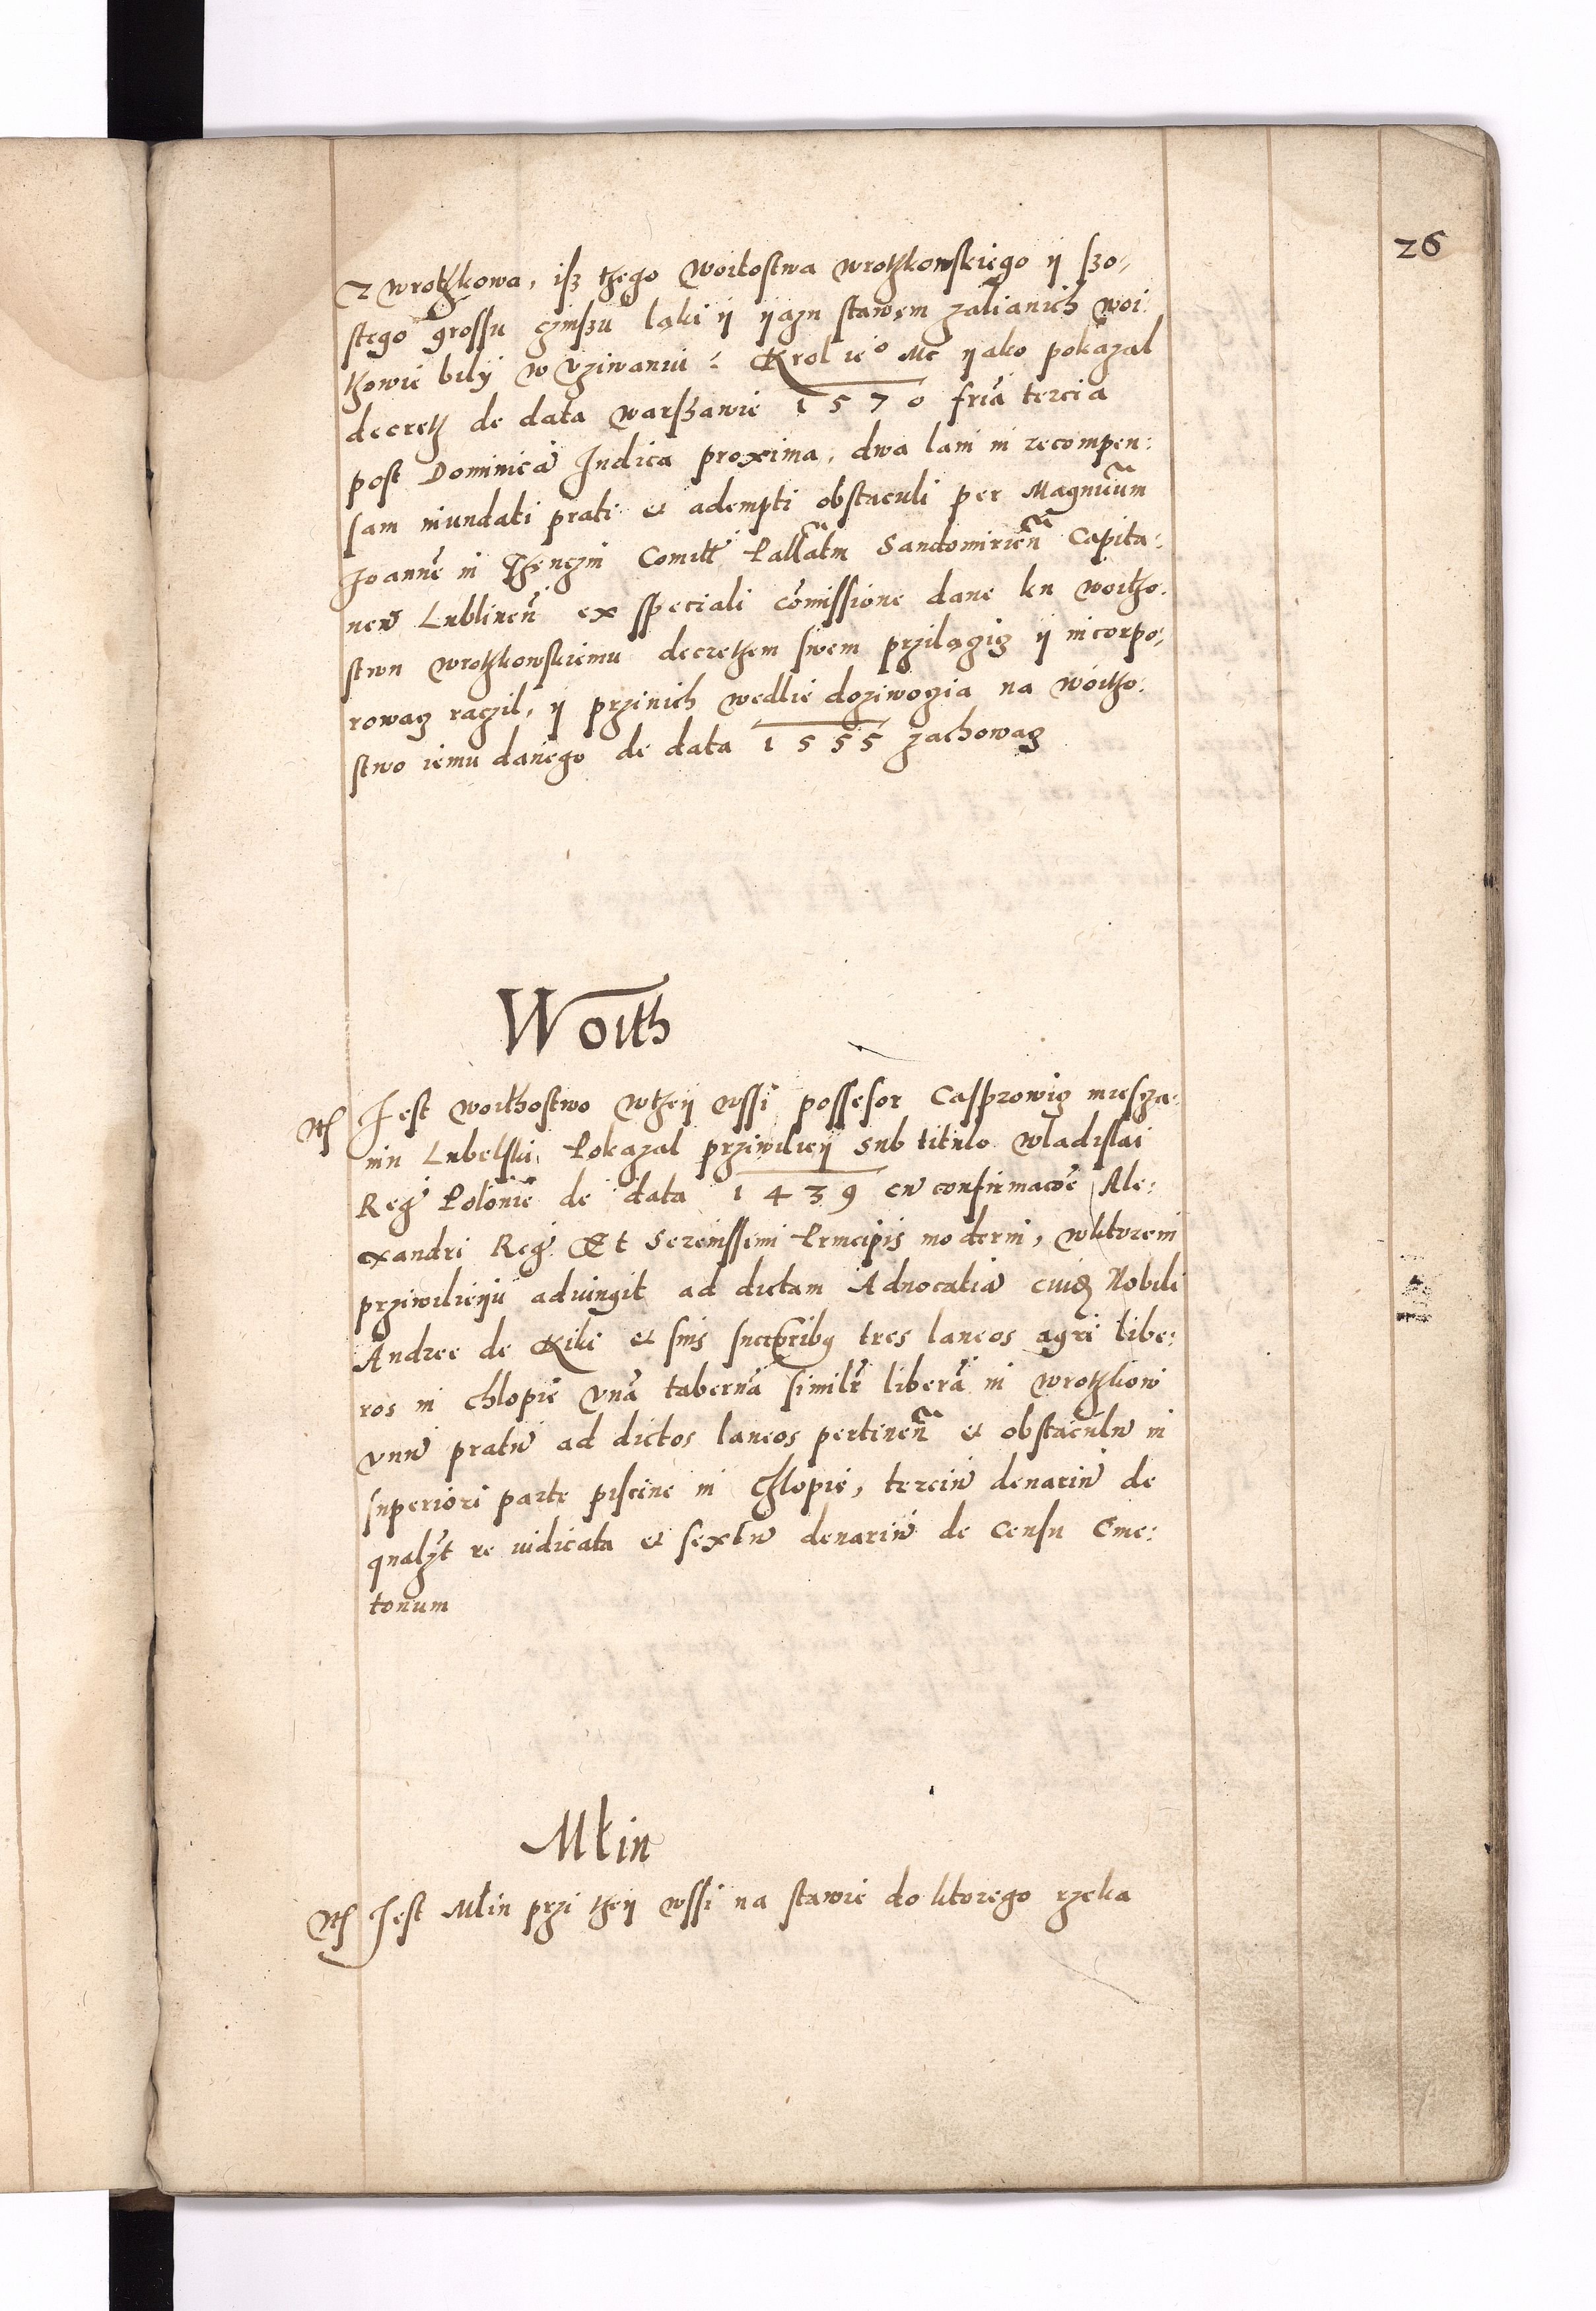 26
Z wrothkowa, isz thego woitostwa wrothkowskiego ij szo,
stego grossu czinszu laki ij ijazu stawem zalianich woi:
thowie bilij w vziwaniu: Krol ieº Mc ijako pokazal
decreth de data warszawie 1570 friã tercia
post Dominicã Judica proxima, dwa lani in recompen:
sam inundati prati et adempti obstaculi per Magnificum
Joannẽ in Thenczin Comitẽ Pallatm Sandomirieñ Capita:
neũ Lublineñ ex speciali cõmissione dane ku woitho:
stwu wrothkowskiemu decrethem swem przilączicz ij incorpo:
rowacz raczil, ij przinich wedlie doziwoczia na woitho:
stwo iemu danego de data 1555 zachowacz
Woith
Ith Jest woithostwo wtheij wssi possesor Casprowicz miescza:
nin Lubelski. Pokazal prziwileij sub titulo wladislai
Reg Polonie de data 1439 cũ confirmacõe Ale:
xandri Reg Et Serenissimi Principis moderni, wktorem
prziwileiju adiungit ad dictam Advocatiã cuidẽ Nobili
Andree de Kiki et suis succrỉbus tres laneos agri libe:
ros in Chlopie vnã tabernã similr liberã in wrothkow
vnũ pratũ ad dictos laneos pertineñ et obstaculũ in
superiori parte piscine in Chlopie, terciũ denariũ de
qualzt re iudicata et sextũ denariũ de censu Cme:
tonum
Młin
Ith Jest Młin przi theij wssi na stawie do ktorego rzeka